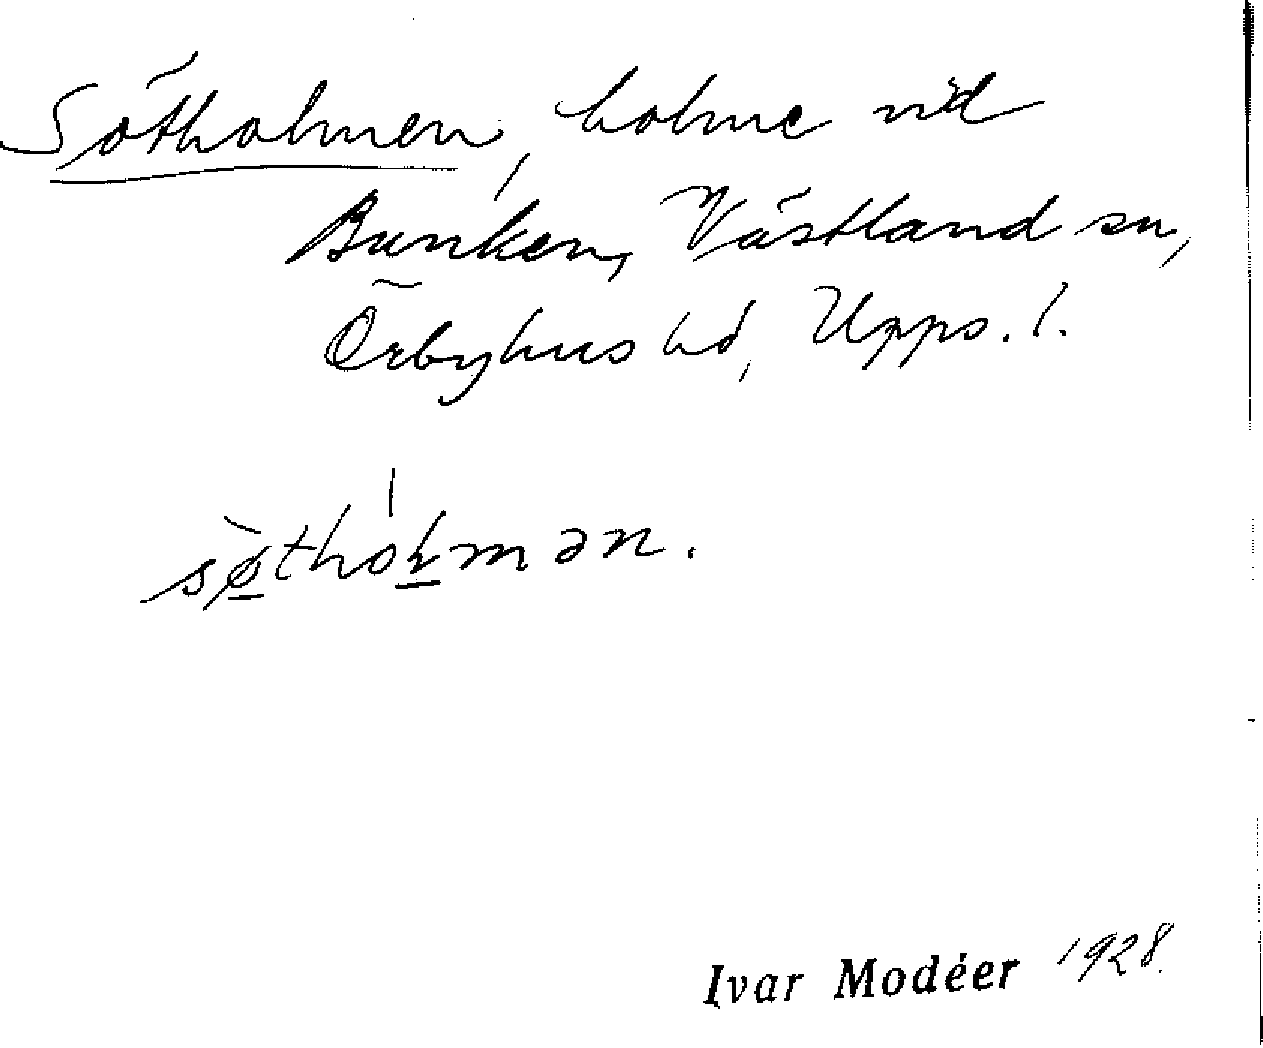 Sötholmen, holme vid
Bunken, Västland sn,
Örbyhus hd, Upps. l.
sø̀thólmən.
Ivar Modéer 1928.